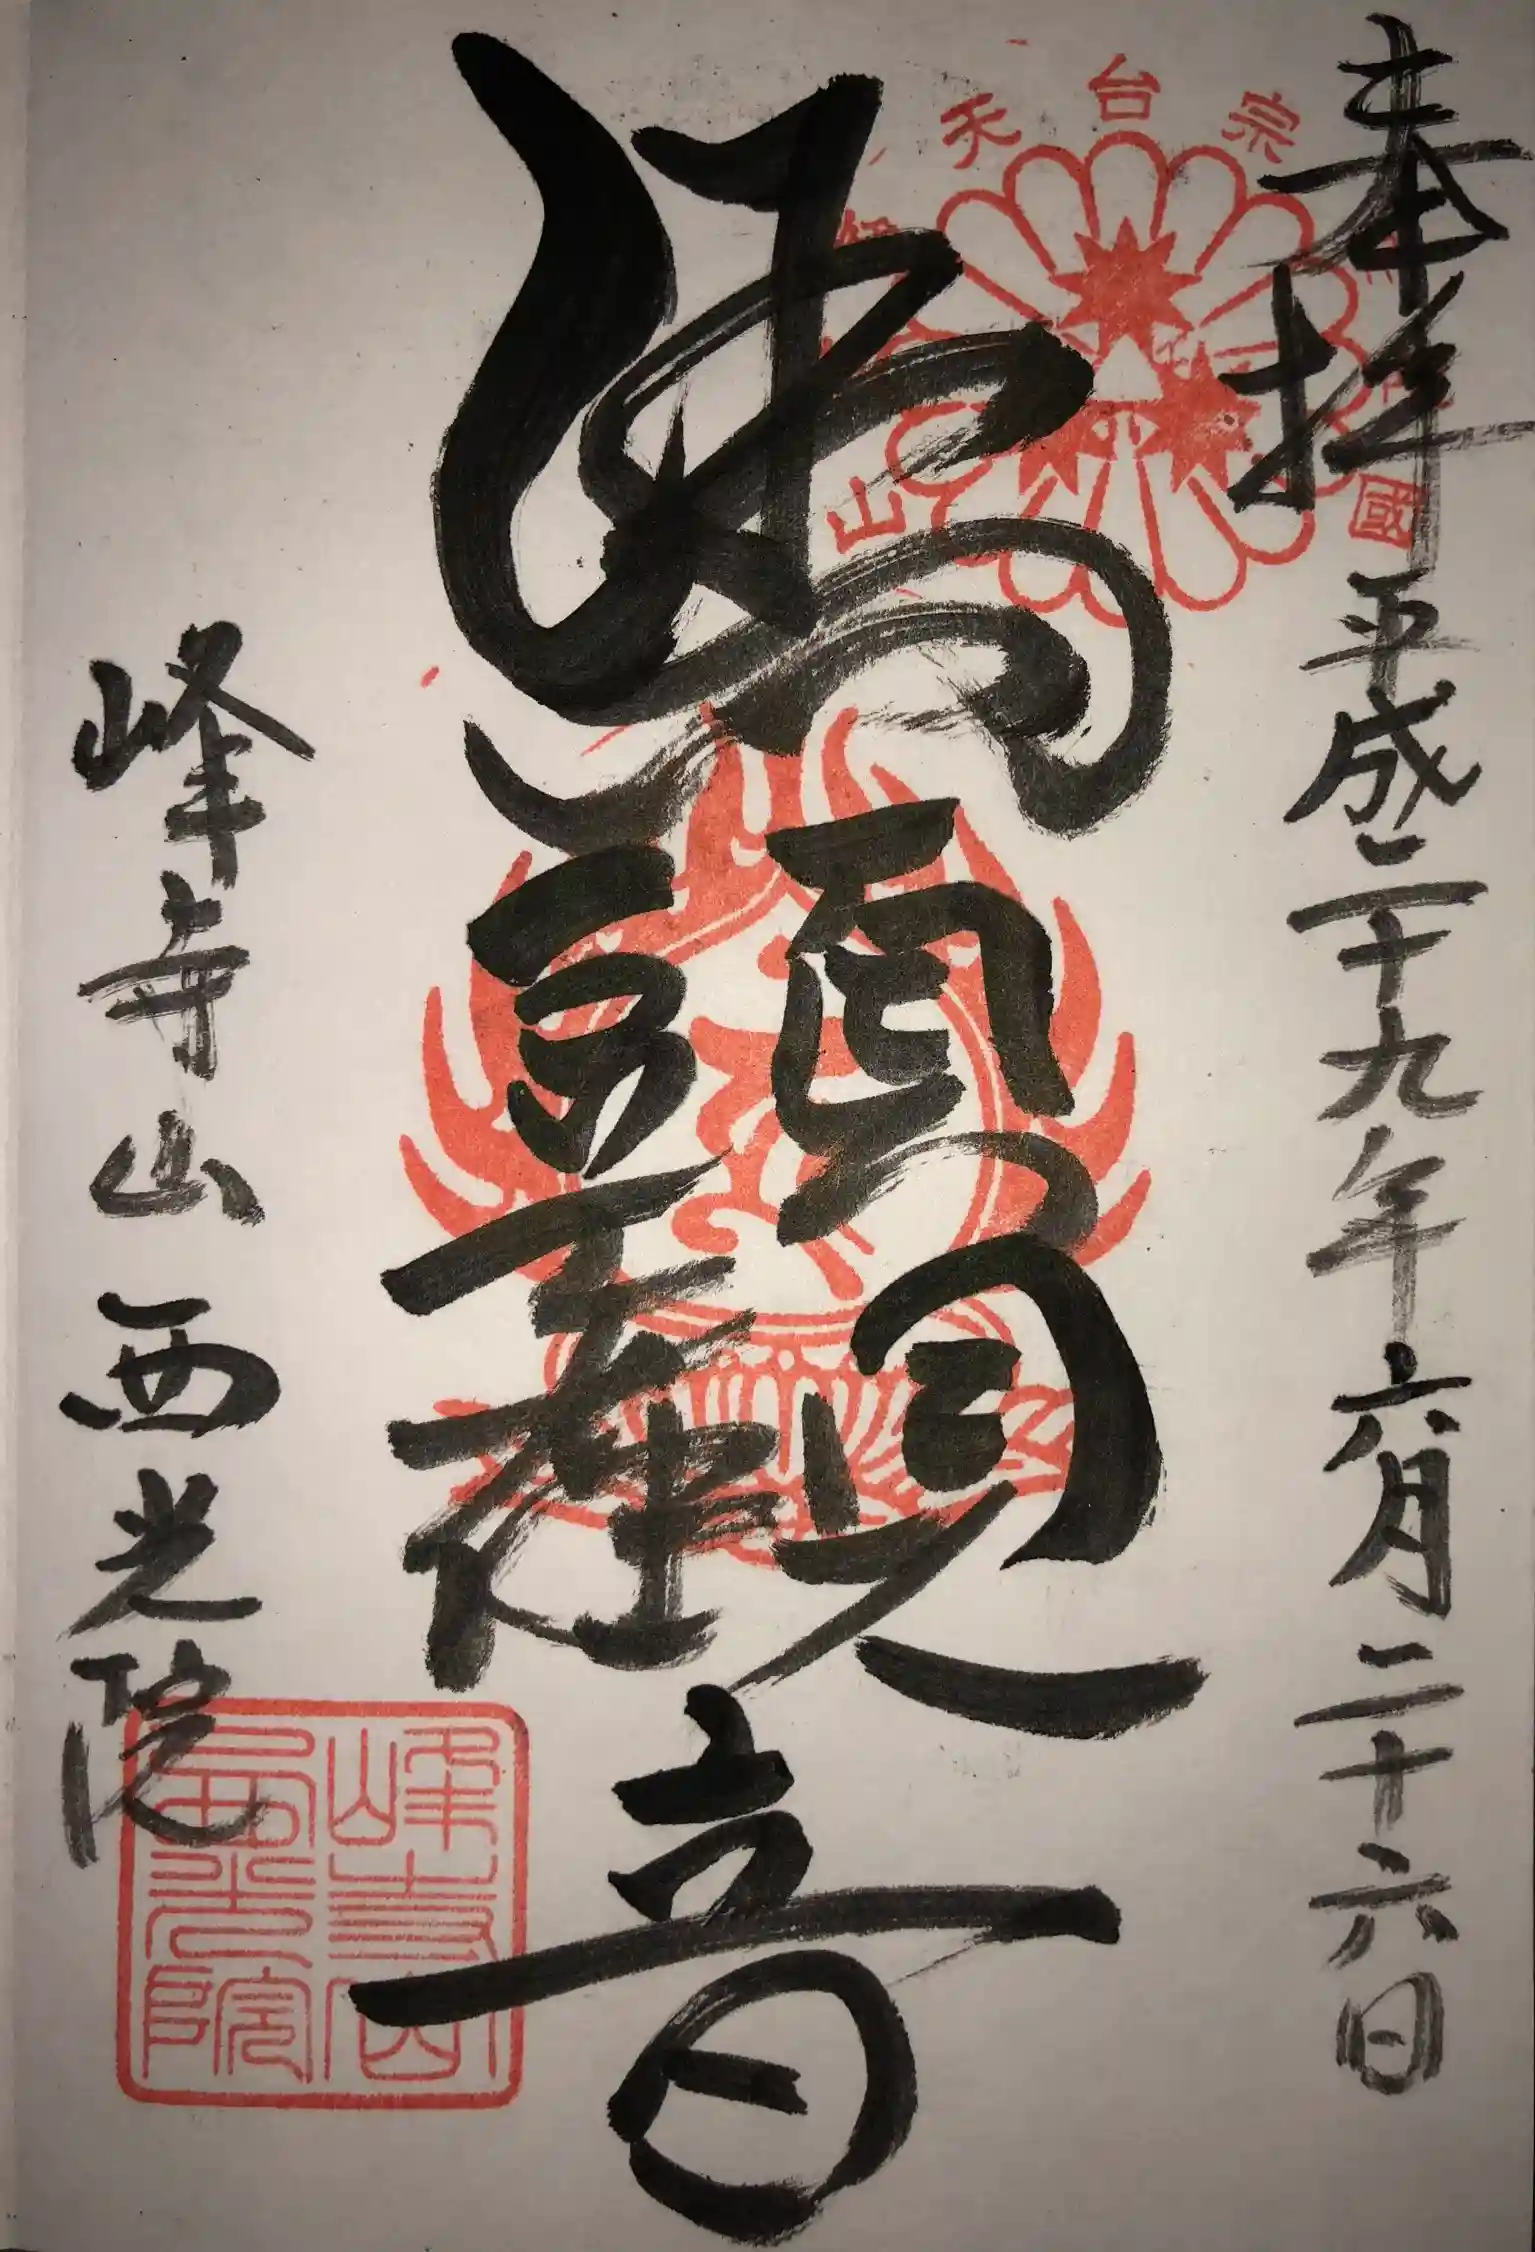 奉拝 平成二十九年六月二十六日
天台宗
馬頭観音
峰寺山 西光院
峰寺山
西光院